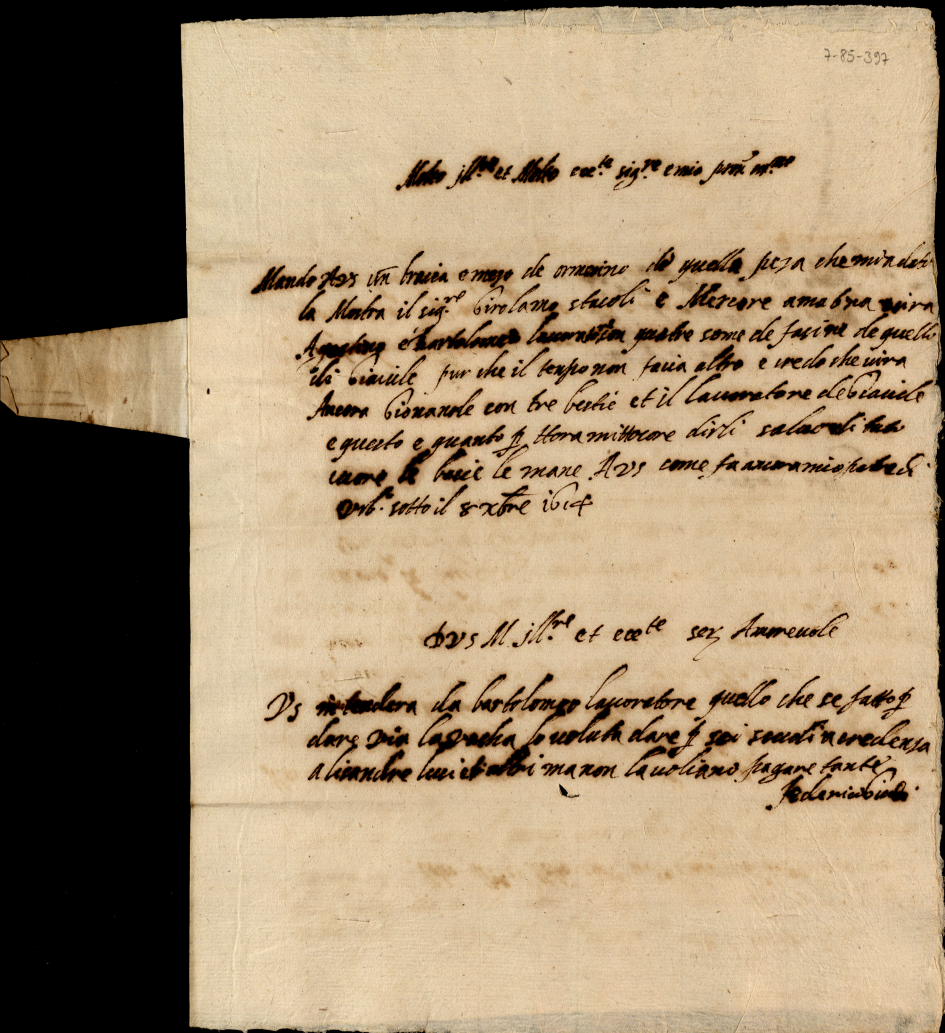 7-85-397
Molto Ill.re et Molto ecc.te sig.re e mio pron
Mando AVS un bracia e mezo de ormesino de quella peza che mi a dato
la Mostra il sig.re Girolamo stacoli e Mercore
Agostino e bartolomeo quatre some de fasine de quelle
di Giavile pur che il tempo non facia altro e credo che vira
Ancora Giovanole con tre bestie et il lavoratore de Giavile
e questo e quanto p dirli
core le bacie le mane AVS come fa ancora mio patre di
Urb.o sotto il 8 xbre 1614
DVS M. Ill.re et ecc.te ser Amrevole
VS intendera da bartolomeo lavoratore quello che se fatto p
dare via la vacha lo voluta dare p sei scudi a credenza
a lisandre lui et altri ma non la voliano pagare tante
Federico